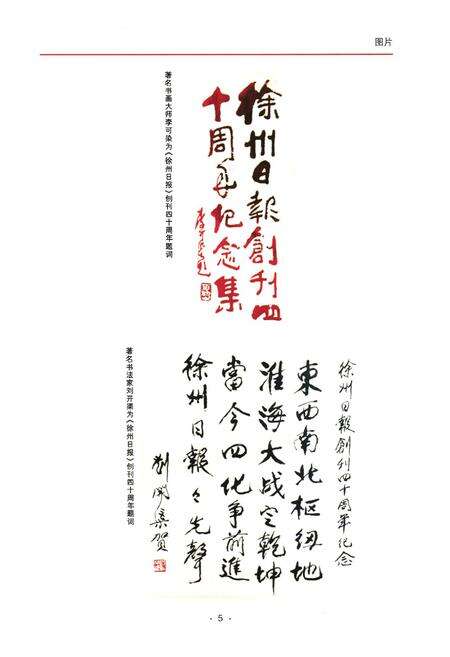 图片
徐州日報創刊四
十周年纪念集
李可染题
著名书画大师李可染为《徐州日报》创刊四十周年题词
徐州日報創刊四十周年紀念
東西南北枢纽地
淮海大战定乾坤
當今四化争前進
徐州日報々先聲
劉開渠贺
著名书法家刘开渠为《徐州日报》创刊四十周年题词
·5·